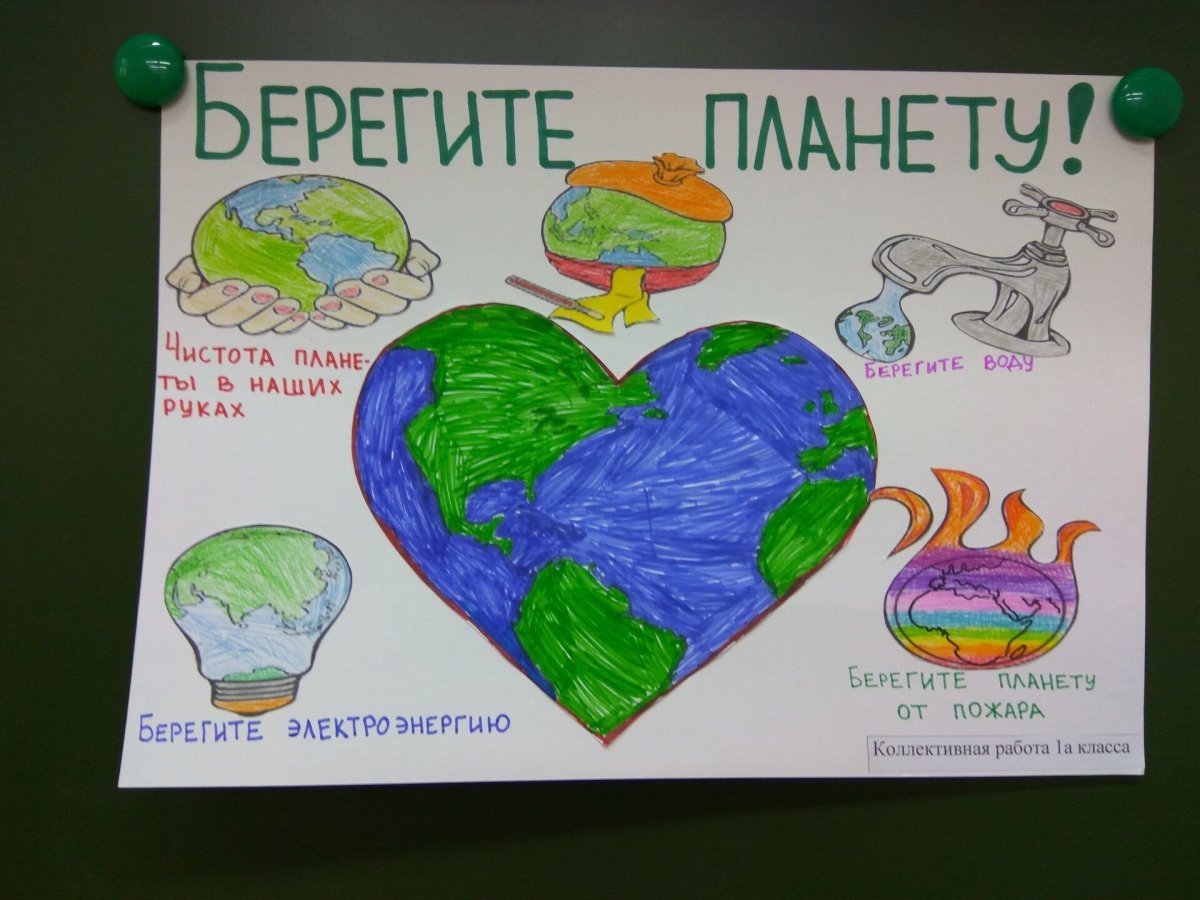 БЕРЕГИТЕ ПЛАНЕТУ!
ЧИСТОТА ПЛАНЕ-
ТЫ В НАШИХ
РУКАХ
БЕРЕГИТЕ ВОДУ
БЕРЕГИТЕ ЭЛЕКТРОЭНЕРГИЮ
БЕРЕГИТЕ ПЛАНЕТУ
ОТ ПОЖАРА
Коллективная работа 1а класса